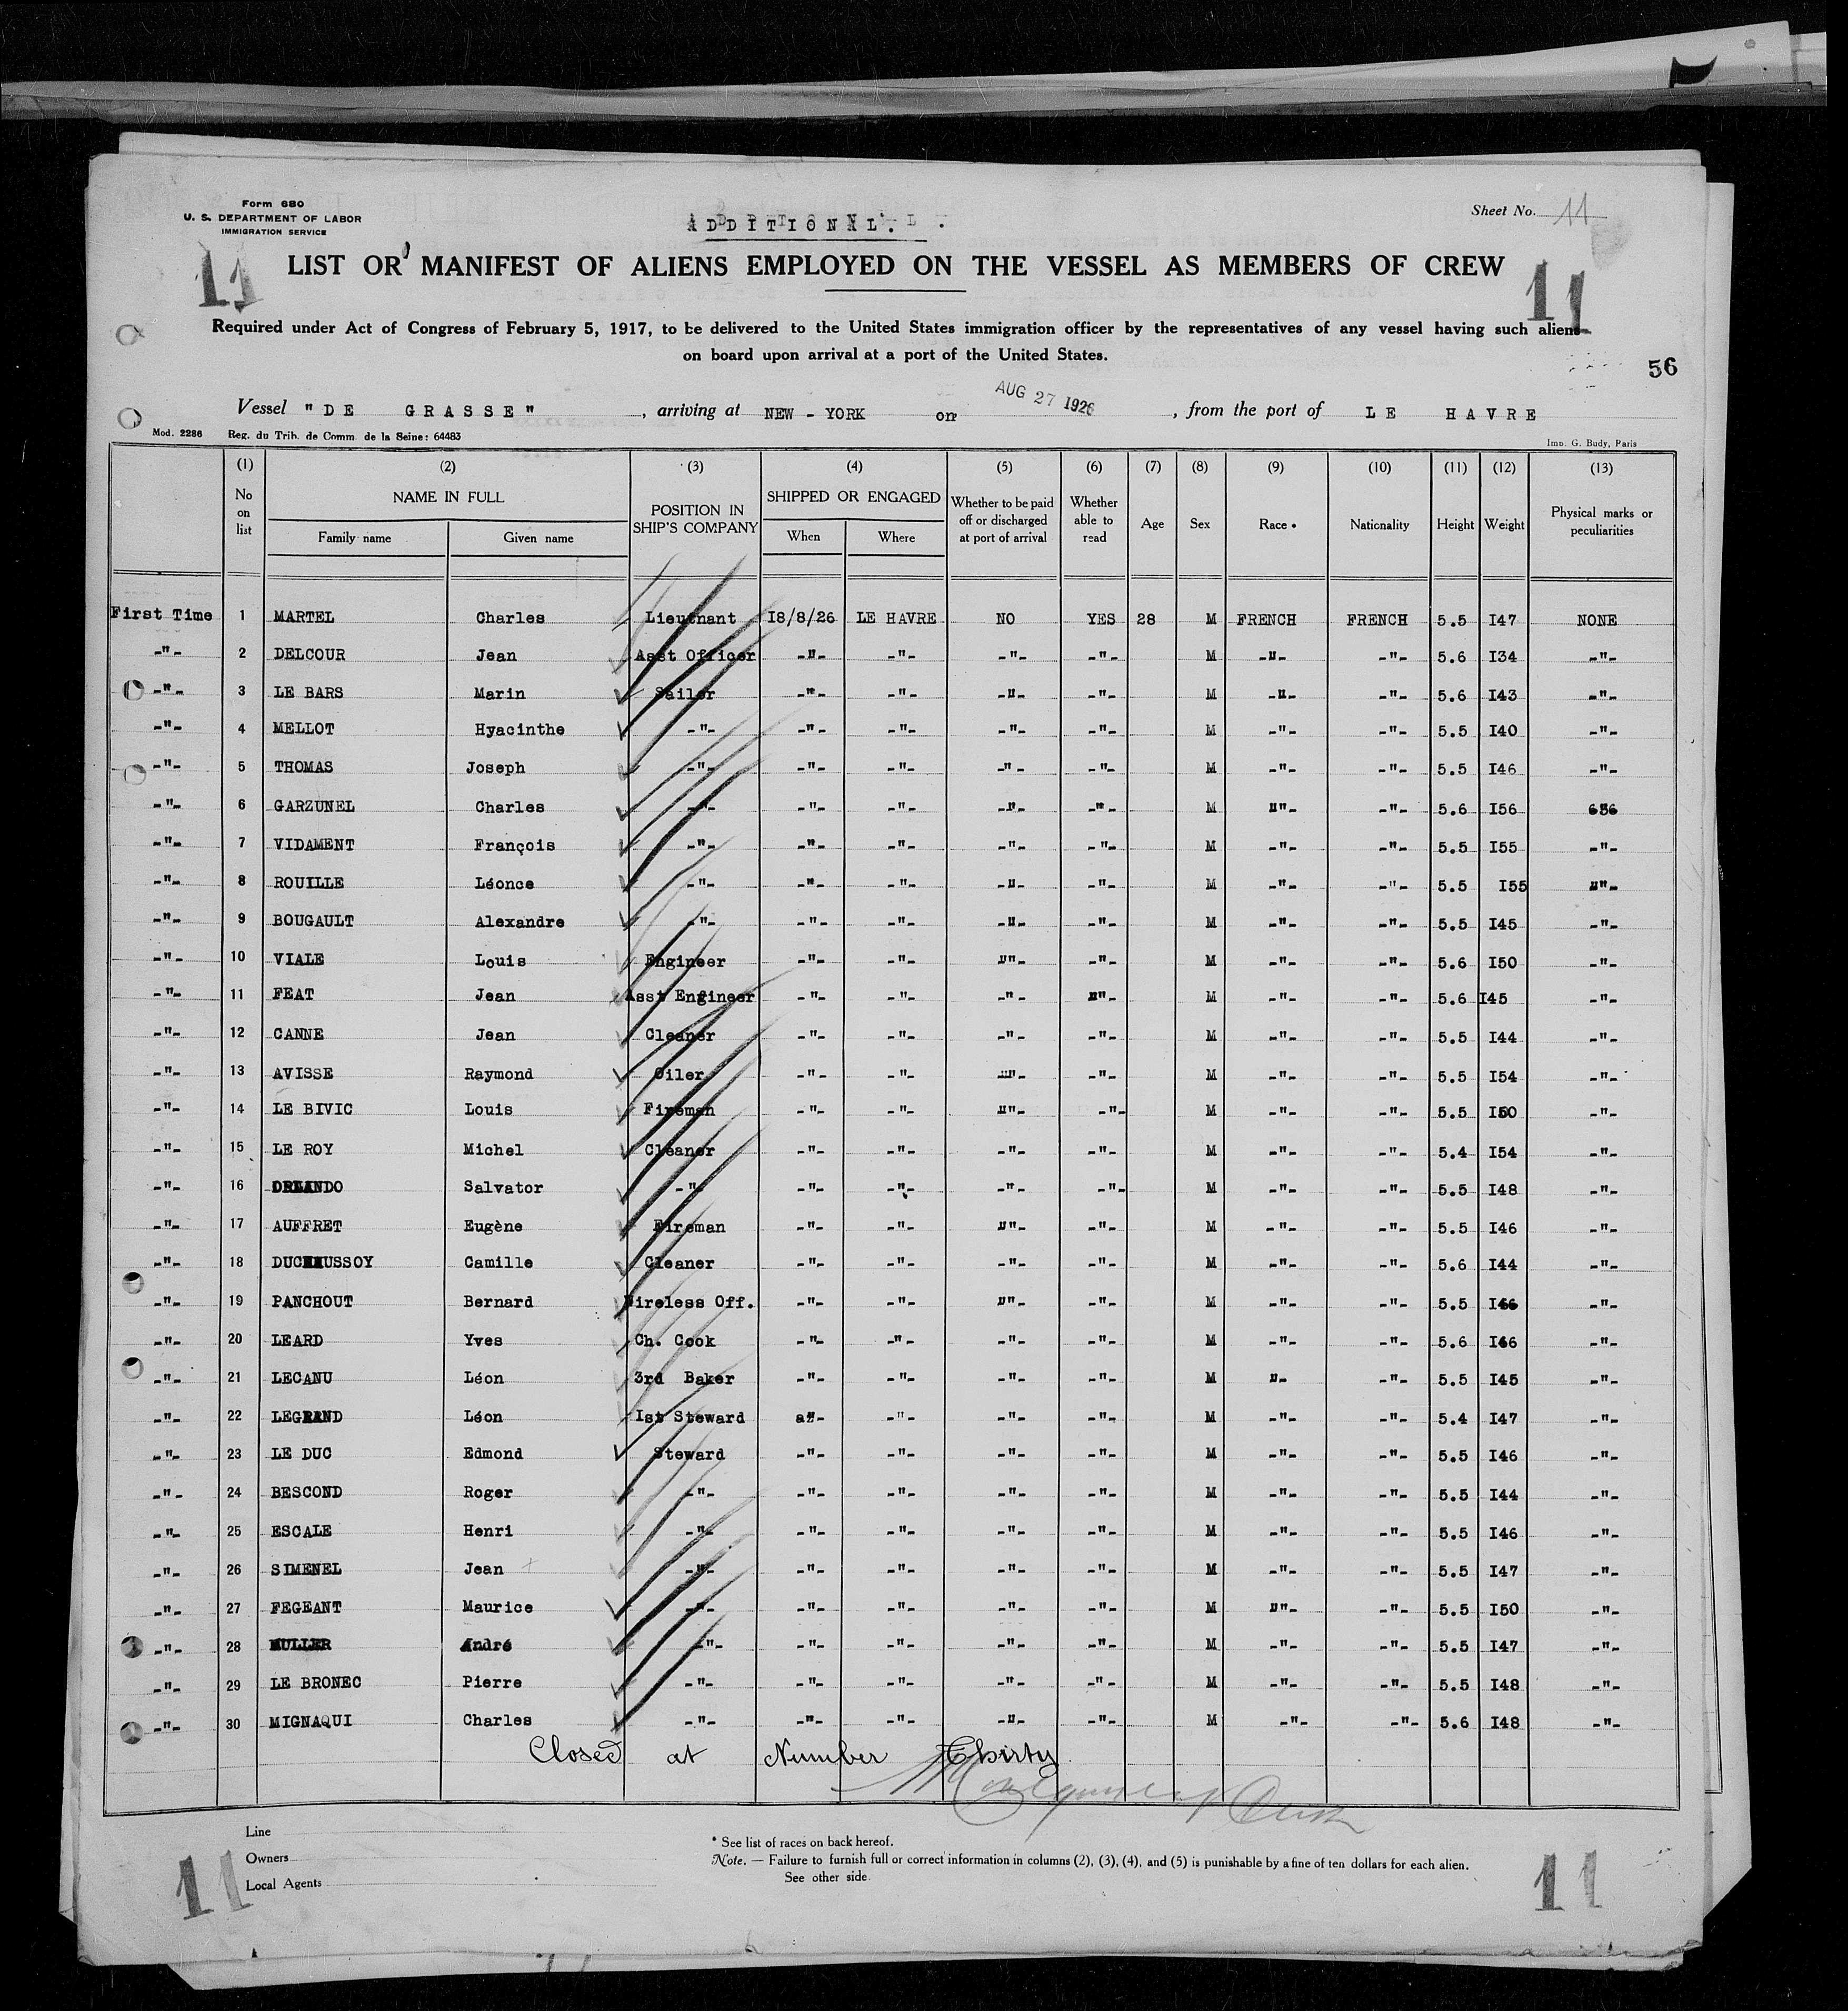 Form 680
U. S. DEPARTMENT OF LABOR
IMMIGRATION SERVICE
ADDITIONAL.
Sheet No. 11
LIST OR MANIFEST OF ALIENS EMPLOYED ON THE VESSEL AS MEMBERS OF CREW
11 11
Required under Act of Congress of February 5, 1917, to be delivered to the United States immigration officer by the representatives of any vessel having such aliens
on board upon arrival at a port of the United States.
56
Vessel "DE GRASSE", arriving at NEW-YORK on AUG 27 1926, from the port of LE HAVRE
Mod. 2286 Reg. du Trib. de Comm. de la Seine: 64483 Imp. G. Budy, Paris
(1) (2) (3) (4) (5) (6) (7) (8) (9) (10) (11) (12) (13)
No on list NAME IN FULL POSITION IN SHIP'S COMPANY SHIPPED OR ENGAGED Whether to be paid off or discharged at port of arrival Whether able to read Age Sex Race * Nationality Height Weight Physical marks or peculiarities
Family name Given name When Where
First Time 1 MARTEL Charles Lieutnant I8/8/26 LE HAVRE NO YES 28 M FRENCH FRENCH 5.5 I47 NONE
-"- 2 DELCOUR Jean Asst Officer -"- -"- -"- -"- M -"- -"- 5.6 I34 -"-
-"- 3 LE BARS Marin Sailor -"- -"- -"- -"- M -"- -"- 5.6 I43 -"-
-"- 4 MELLOT Hyacinthe -"- -"- -"- -"- -"- M -"- -"- 5.5 I40 -"-
-"- 5 THOMAS Joseph -"- -"- -"- -"- -"- M -"- -"- 5.5 I46 -"-
-"- 6 GARZUNEL Charles -"- -"- -"- -"- -"- M "- -"- 5.6 I56
-"- 7 VIDAMENT François -"- -"- -"- -"- -"- M -"- -"- 5.5 I55 -"-
-"- 8 ROUILLE Léonce -"- -"- -"- -"- -"- M -"- -"- 5.5 I55 "-
-"- 9 BOUGAULT Alexandre -"- -"- -"- -"- -"- M -"- -"- 5.5 I45 -"-
-"- 10 VIALE Louis Engineer -"- -"- "- -"- M -"- -"- 5.6 I50 -"-
-"- 11 FEAT Jean Asst Engineer -"- -"- -"- "- M -"- -"- 5.6 I45 -"-
-"- 12 CANNE Jean Cleaner -"- -"- -"- -"- M -"- -"- 5.5 I44 -"-
-"- 13 AVISSE Raymond Oiler -"- -"- -"- -"- M -"- -"- 5.5 I54 -"-
-"- 14 LE BIVIC Louis Fireman -"- -"- "- -"- M -"- -"- 5.5 I50 -"-
-"- 15 LE ROY Michel Cleaner -"- -"- -"- -"- M -"- -"- 5.4 I54 -"-
-"- 16 ORLANDO Salvator -"- -"- -"- -"- -"- M -"- -"- 5.5 I48 -"-
-"- 17 AUFFRET Eugène Fireman -"- -"- "- -"- M -"- -"- 5.5 I46 -"-
-"- 18 DUCHAUSSOY Camille Cleaner -"- -"- -"- -"- M -"- -"- 5.6 I44 -"-
-"- 19 PANCHOUT Bernard Wireless Off. -"- -"- "- -"- M -"- -"- 5.5 I46 -"-
-"- 20 LEARD Yves Ch. Cook -"- -"- -"- -"- M -"- -"- 5.6 I46 -"-
-"- 21 LECANU Léon 3rd Baker -"- -"- -"- -"- M "- -"- 5.5 I45 -"-
-"- 22 LEGRAND Léon Ist Steward -"- -"- -"- -"- M -"- -"- 5.4 I47 -"-
-"- 23 LE DUC Edmond Steward -"- -"- -"- -"- M -"- -"- 5.5 I46 -"-
-"- 24 BESCOND Roger -"- -"- -"- -"- -"- M -"- -"- 5.5 I44 -"-
-"- 25 ESCALE Henri -"- -"- -"- -"- -"- M -"- -"- 5.5 I46 -"-
-"- 26 SIMENEL Jean -"- -"- -"- -"- -"- M -"- -"- 5.5 I47 -"-
-"- 27 FEGEANT Maurice -"- -"- -"- -"- -"- M "- -"- 5.5 I50 -"-
-"- 28 MULLER André -"- -"- -"- -"- -"- M -"- -"- 5.5 I47 -"-
-"- 29 LE BRONEC Pierre -"- -"- -"- -"- -"- M -"- -"- 5.5 I48 -"-
-"- 30 MIGNAQUI Charles -"- -"- -"- -"- -"- M -"- -"- 5.6 I48 -"-
Closed at Number Thirty
Line
Owners
Local Agents
* See list of races on back hereof.
Note. — Failure to furnish full or correct information in columns (2), (3), (4), and (5) is punishable by a fine of ten dollars for each alien.
See other side.
11 11